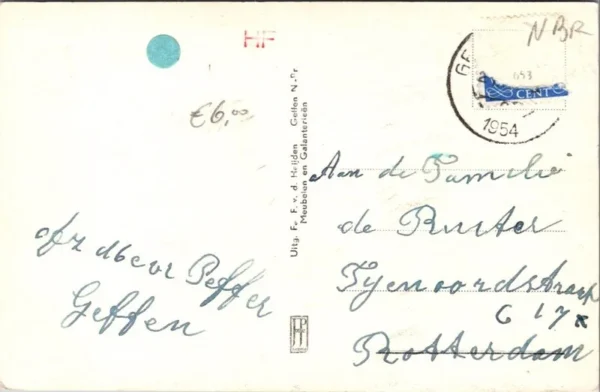 HF
NBR
€6,00
GE
653
CENT
1954
Uitg. Fa. F. v. d. Heijden Geffen N.-Br.
Meubelen en Galanterieën
Aan de Familie
de Ruiter
Fijenoordstraat
617
Rotterdam
afz
Peffer
Geffen